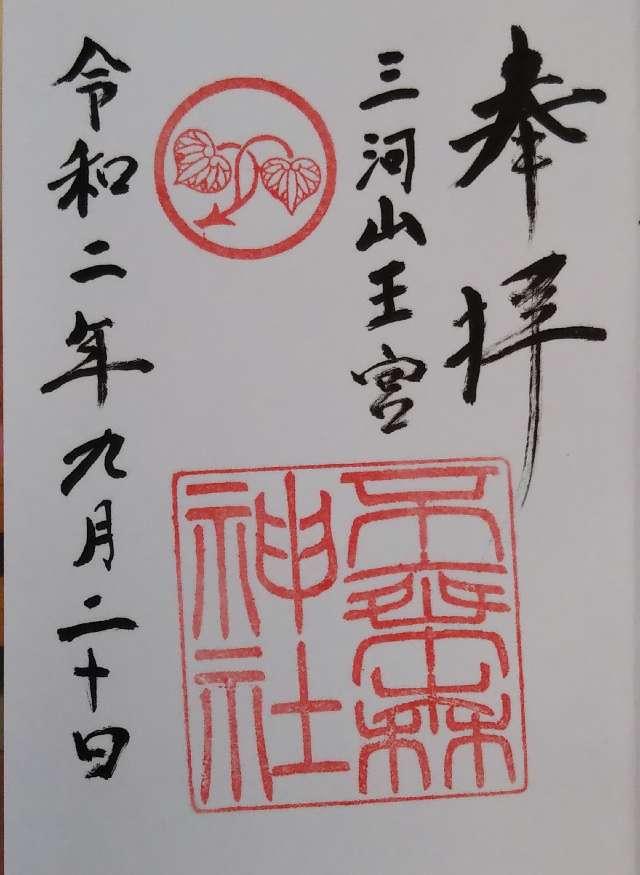 奉拝
三河山王宮
不乗森
神社
令和二年九月二十日